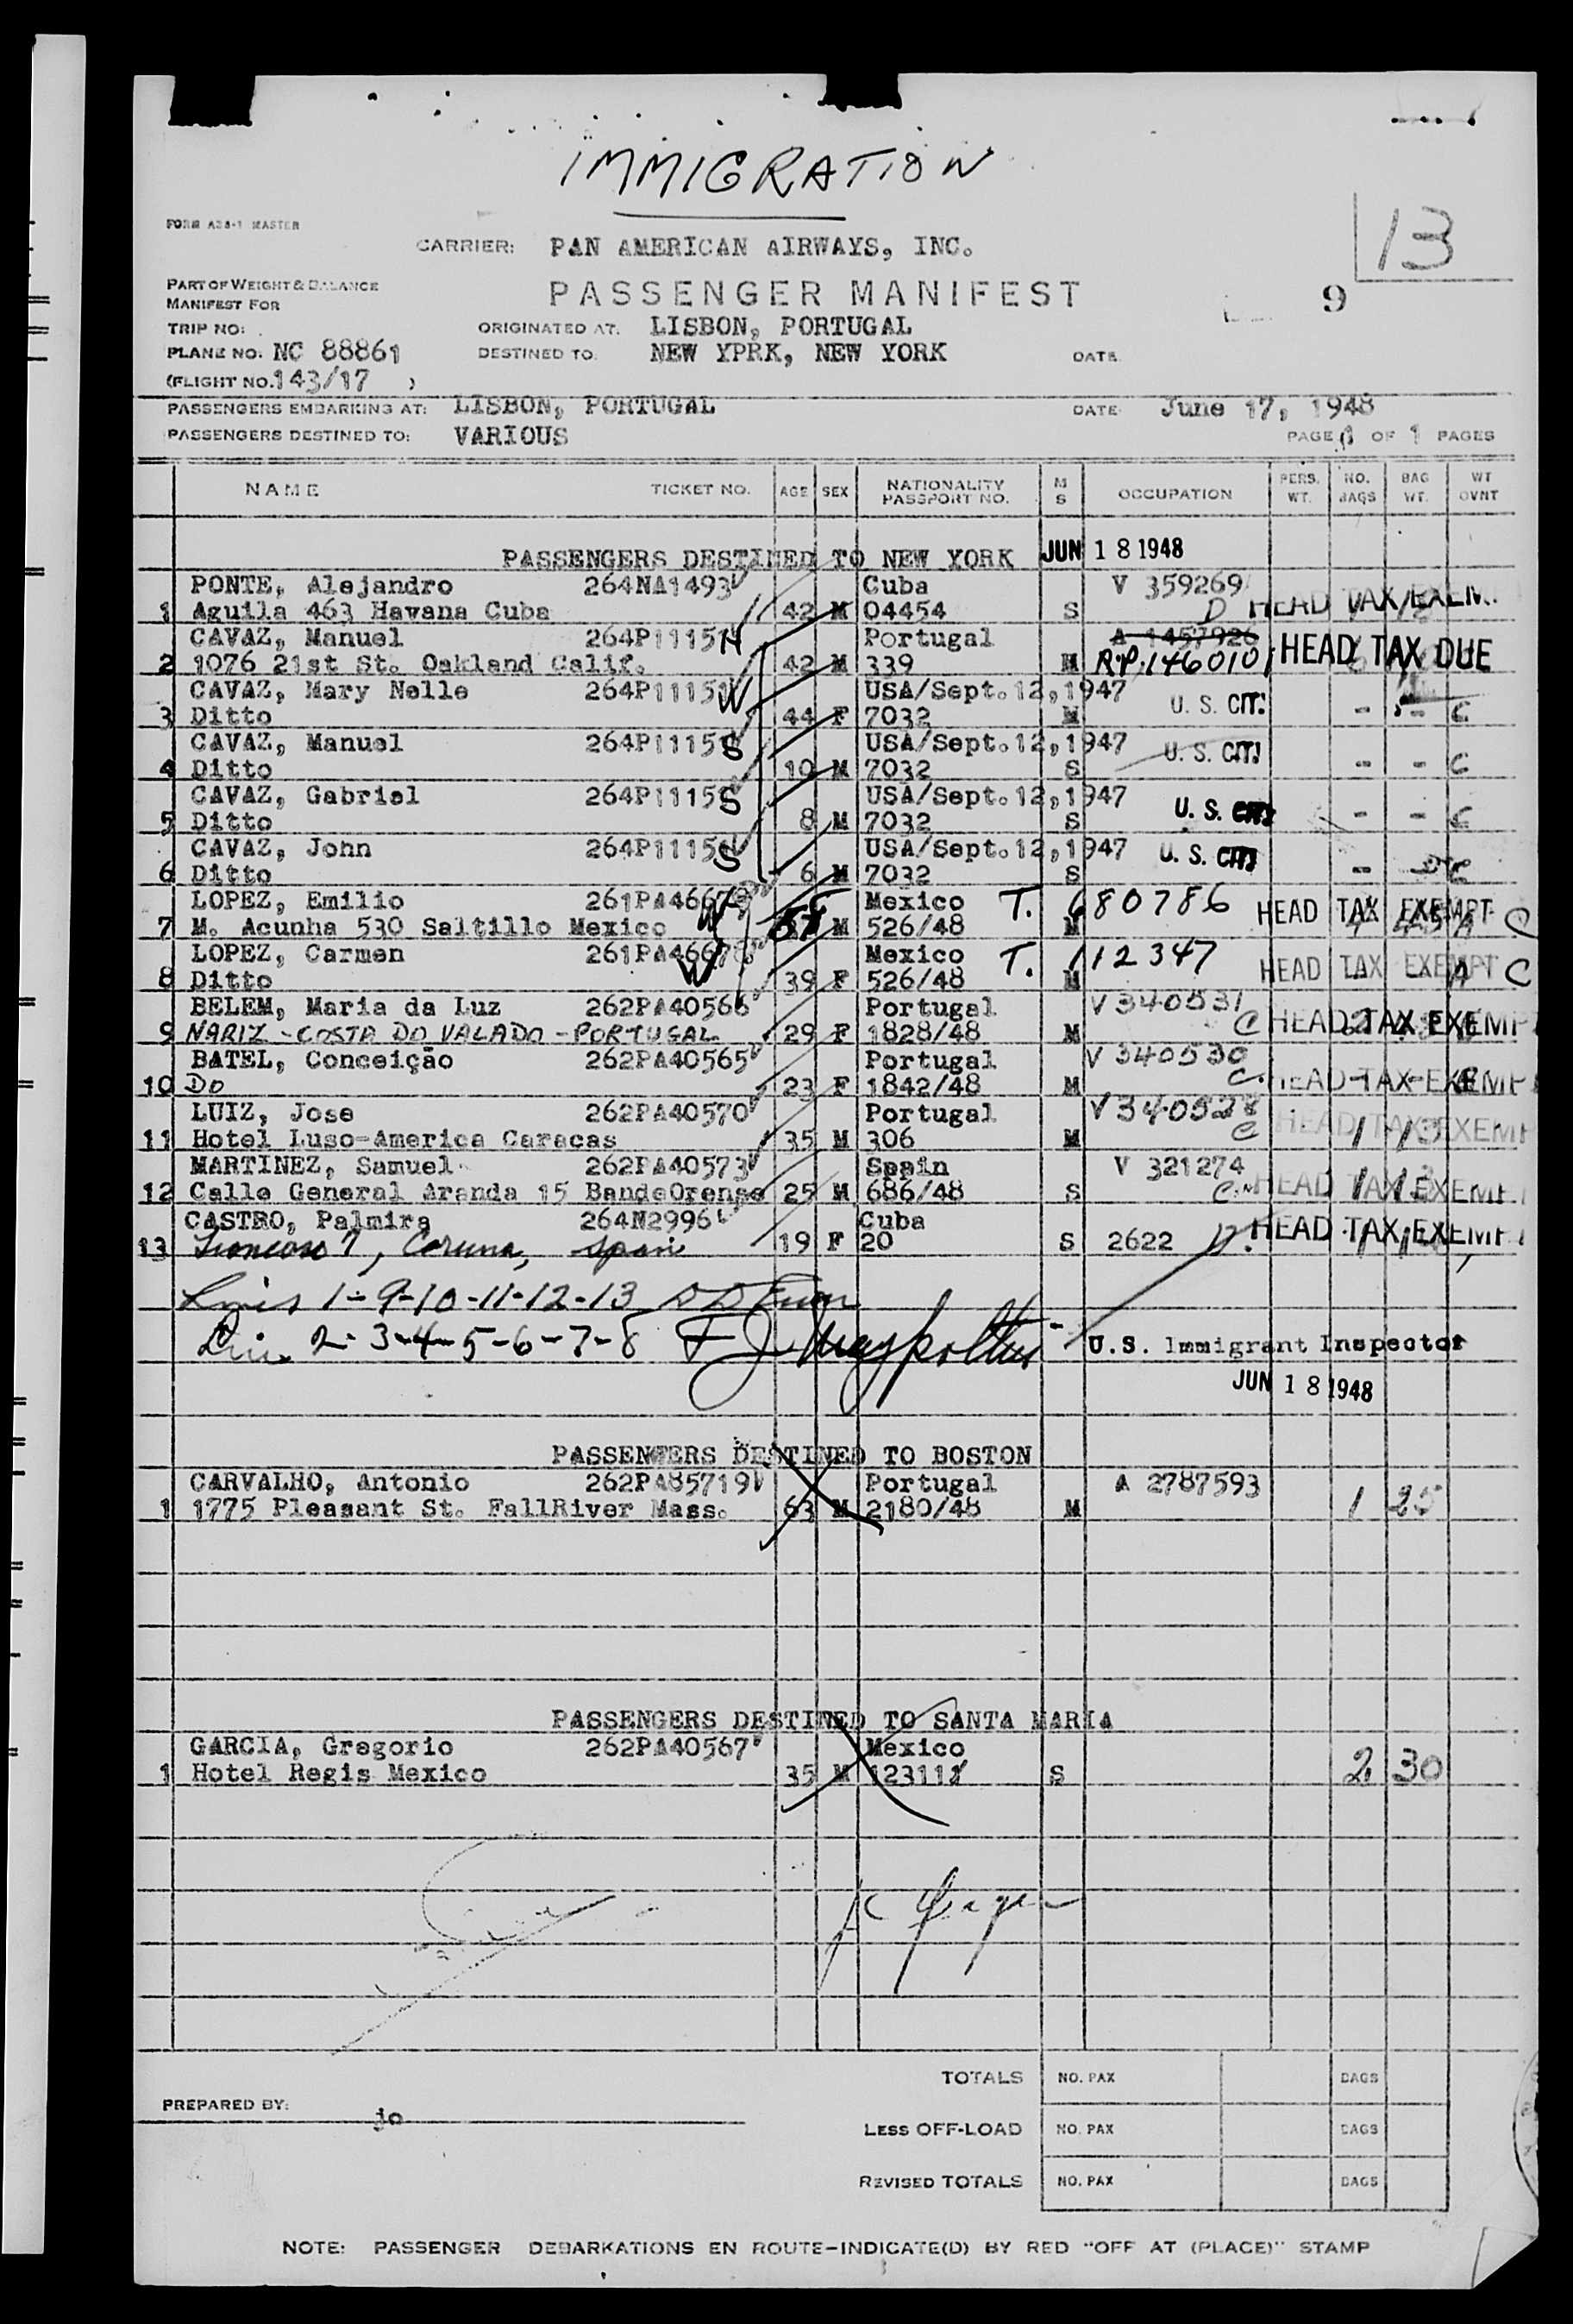 IMMIGRATION
FORM A28-1 MASTER
CARRIER: PAN AMERICAN AIRWAYS, INC.
13
PART OF WEIGHT & BALANCE
MANIFEST FOR
PASSENGER MANIFEST
9
TRIP NO:
ORIGINATED AT. LISBON, PORTUGAL
PLANE NO: NC 88861
DESTINED TO. NEW YPRK, NEW YORK
DATE
(FLIGHT NO. 143/17 )
PASSENGERS EMBARKING AT: LISBON, PORTUGAL DATE June 17, 1948
PASSENGERS DESTINED TO: VARIOUS PAGE 1 OF 1 PAGES
NAME TICKET NO. AGE SEX NATIONALITY PASSPORT NO. M S OCCUPATION PERS. WT. NO. BAGS BAG WT. WT OVNT
PASSENGERS DESTINED TO NEW YORK JUN 18 1948
PONTE, Alejandro 264NA1493 Cuba V 359269
1 Aguila 463 Havana Cuba 42 M 04454 S D HEAD TAX EXEM.
CAVAZ, Manuel 264P11151 H Portugal A 1457926
2 1076 21st St. Oakland Calif. 42 M 339 M R.P. 146010 HEAD TAX DUE
CAVAZ, Mary Nelle 264P11151 W USA/Sept.12,1947
3 Ditto 44 F 7032 M U. S. CIT. - - C
CAVAZ, Manuel 264P1115 S USA/Sept.12,1947
4 Ditto 10 M 7032 S U. S. CIT. - - C
CAVAZ, Gabriel 264P1115 S USA/Sept.12,1947
5 Ditto 8 M 7032 S U. S. CIT. - - C
CAVAZ, John 264P1115 S USA/Sept.12,1947
6 Ditto 6 M 7032 S U. S. CIT. - - C
LOPEZ, Emilio 261PA46678 Mexico T. 680786
7 M. Acunha 530 Saltillo Mexico M 526/48 M HEAD TAX EXEMPT A C
LOPEZ, Carmen 261PA46678 W Mexico T. 112347
8 Ditto 39 F 526/48 M HEAD TAX EXEMPT A C
BELEM, Maria da Luz 262PA40566 Portugal V 340531
9 NARIZ - COSTA DO VALADO - PORTUGAL 29 F 1828/48 M C HEAD TAX EXEMP
BATEL, Conceição 262PA40565 Portugal V 340530
10 DO 23 F 1842/48 M C. HEAD TAX EXEMP
LUIZ, Jose 262PA40570 Portugal V 340528
11 Hotel Luso-America Caracas 35 M 306 M C HEAD TAX EXEMP
MARTINEZ, Samuel 262PA40573 Spain V 321274
12 Calle General Aranda 15 BandeOrense 25 M 686/48 S C. HEAD TAX EXEMP
CASTRO, Palmira 264N2996 Cuba
13 7, Coruna, Spain 19 F 20 S 2622 D. HEAD TAX EXEMP
1-9-10-11-12-13
2-3-4-5-6-7-8 F J
U.S. Immigrant Inspector
JUN 18 1948
PASSENGERS DESTINED TO BOSTON
CARVALHO, Antonio 262PA85719 Portugal A 2787593
1 1775 Pleasant St. FallRiver Mass. 63 M 2180/48 M 1 25
PASSENGERS DESTINED TO SANTA MARIA
GARCIA, Gregorio 262PA40567 Mexico
1 Hotel Regis Mexico 35 M 123111 S 2 30
TOTALS NO. PAX BAGS
PREPARED BY: jo
LESS OFF-LOAD NO. PAX BAGS
REVISED TOTALS NO. PAX BAGS
NOTE: PASSENGER DEBARKATIONS EN ROUTE-INDICATE(D) BY RED "OFF AT (PLACE)" STAMP